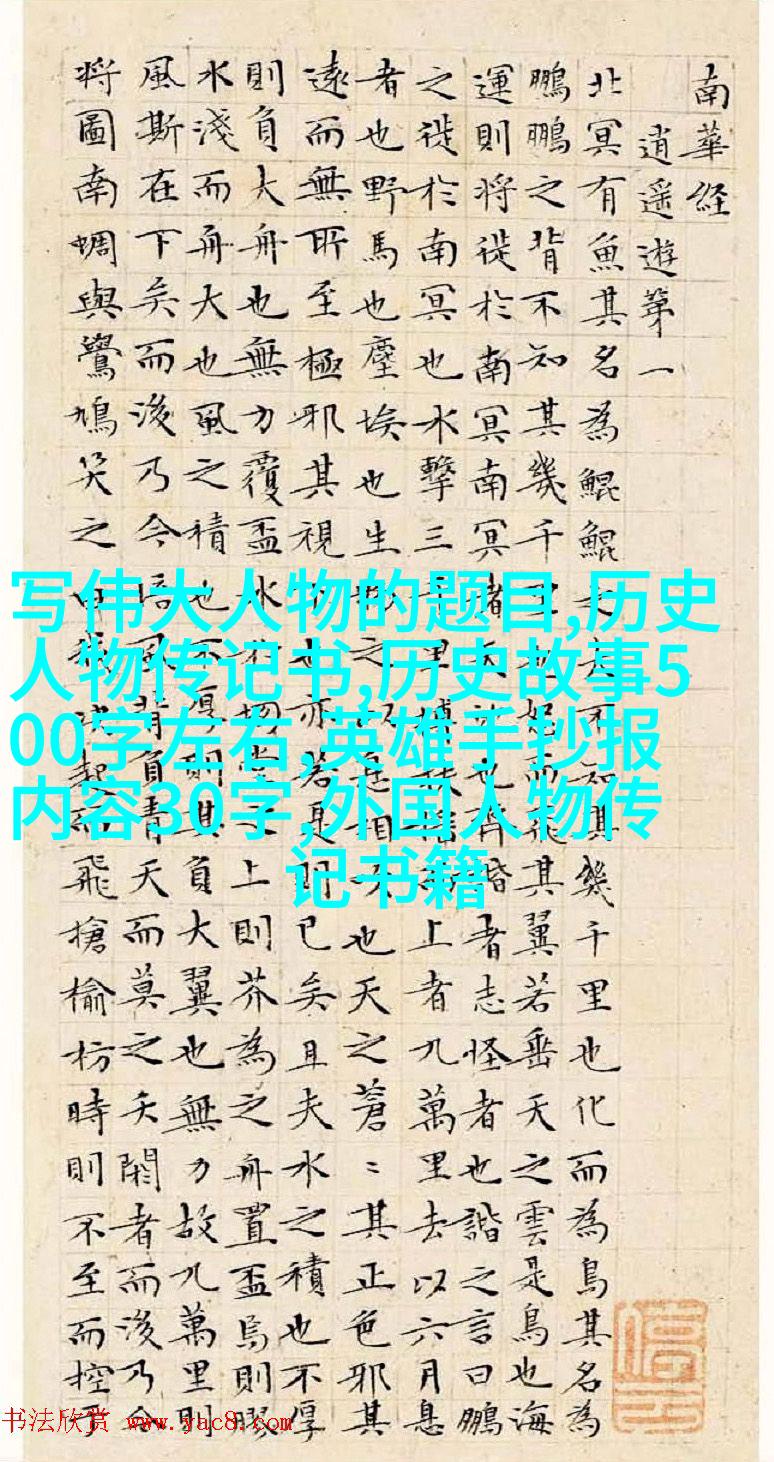 南華経
逍遥遊第一
北冥有魚其名為鯤鯤之大不知其幾千里也化而為鳥其名為
鵬鵬之背不知其幾千里也怒而飛其翼若垂天之雲是鳥也海
運則将徙於南冥南冥者天池也齊諧者志怪者也諧之言曰鵬
之徙於南冥也水擊三千里摶扶搖而上者九萬里去以六月息
者也野馬也塵埃也生物之以息相吹也天之蒼〻其正色邪其
遠而無所至極邪其視下也亦若是則已矣且夫水之積也不厚
則負大舟也無力覆盃水於坳堂之上則芥為之舟置盃焉則膠
水淺而舟大也風之積也不厚則其負大翼也無力故九萬里則
風斯在下矣而後乃今培風背負青天而莫之夭閼者而後乃今
将圖南蜩與鷽鳩笑之決起而飛搶榆枋時則不至而控於
写伟大人物的题目,历史
人物传记书,历史故事5
00字左右,英雄手抄报
内容30字,外国人物传
记书籍
书法欣赏 www.yac8.com